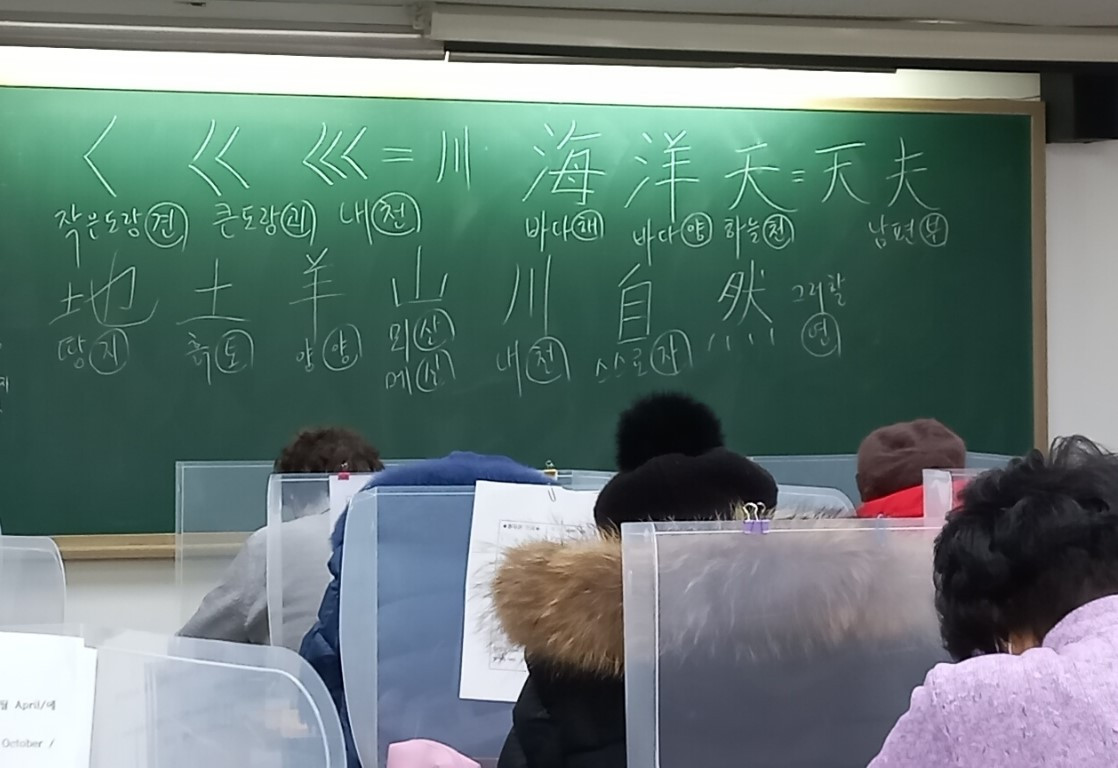 〈 〈〈 〈〈〈 = 川 海 洋 天 = 天 夫
작은도랑 견 큰도랑 괴 내 천 바다 해 바다 양 하늘 천 남편 부
地 土 羊 山 川 自 然 그러할
땅 지 흙 토 양 양 뫼 산 내 천 스스로 자 연
메 산
월 April/에
October /